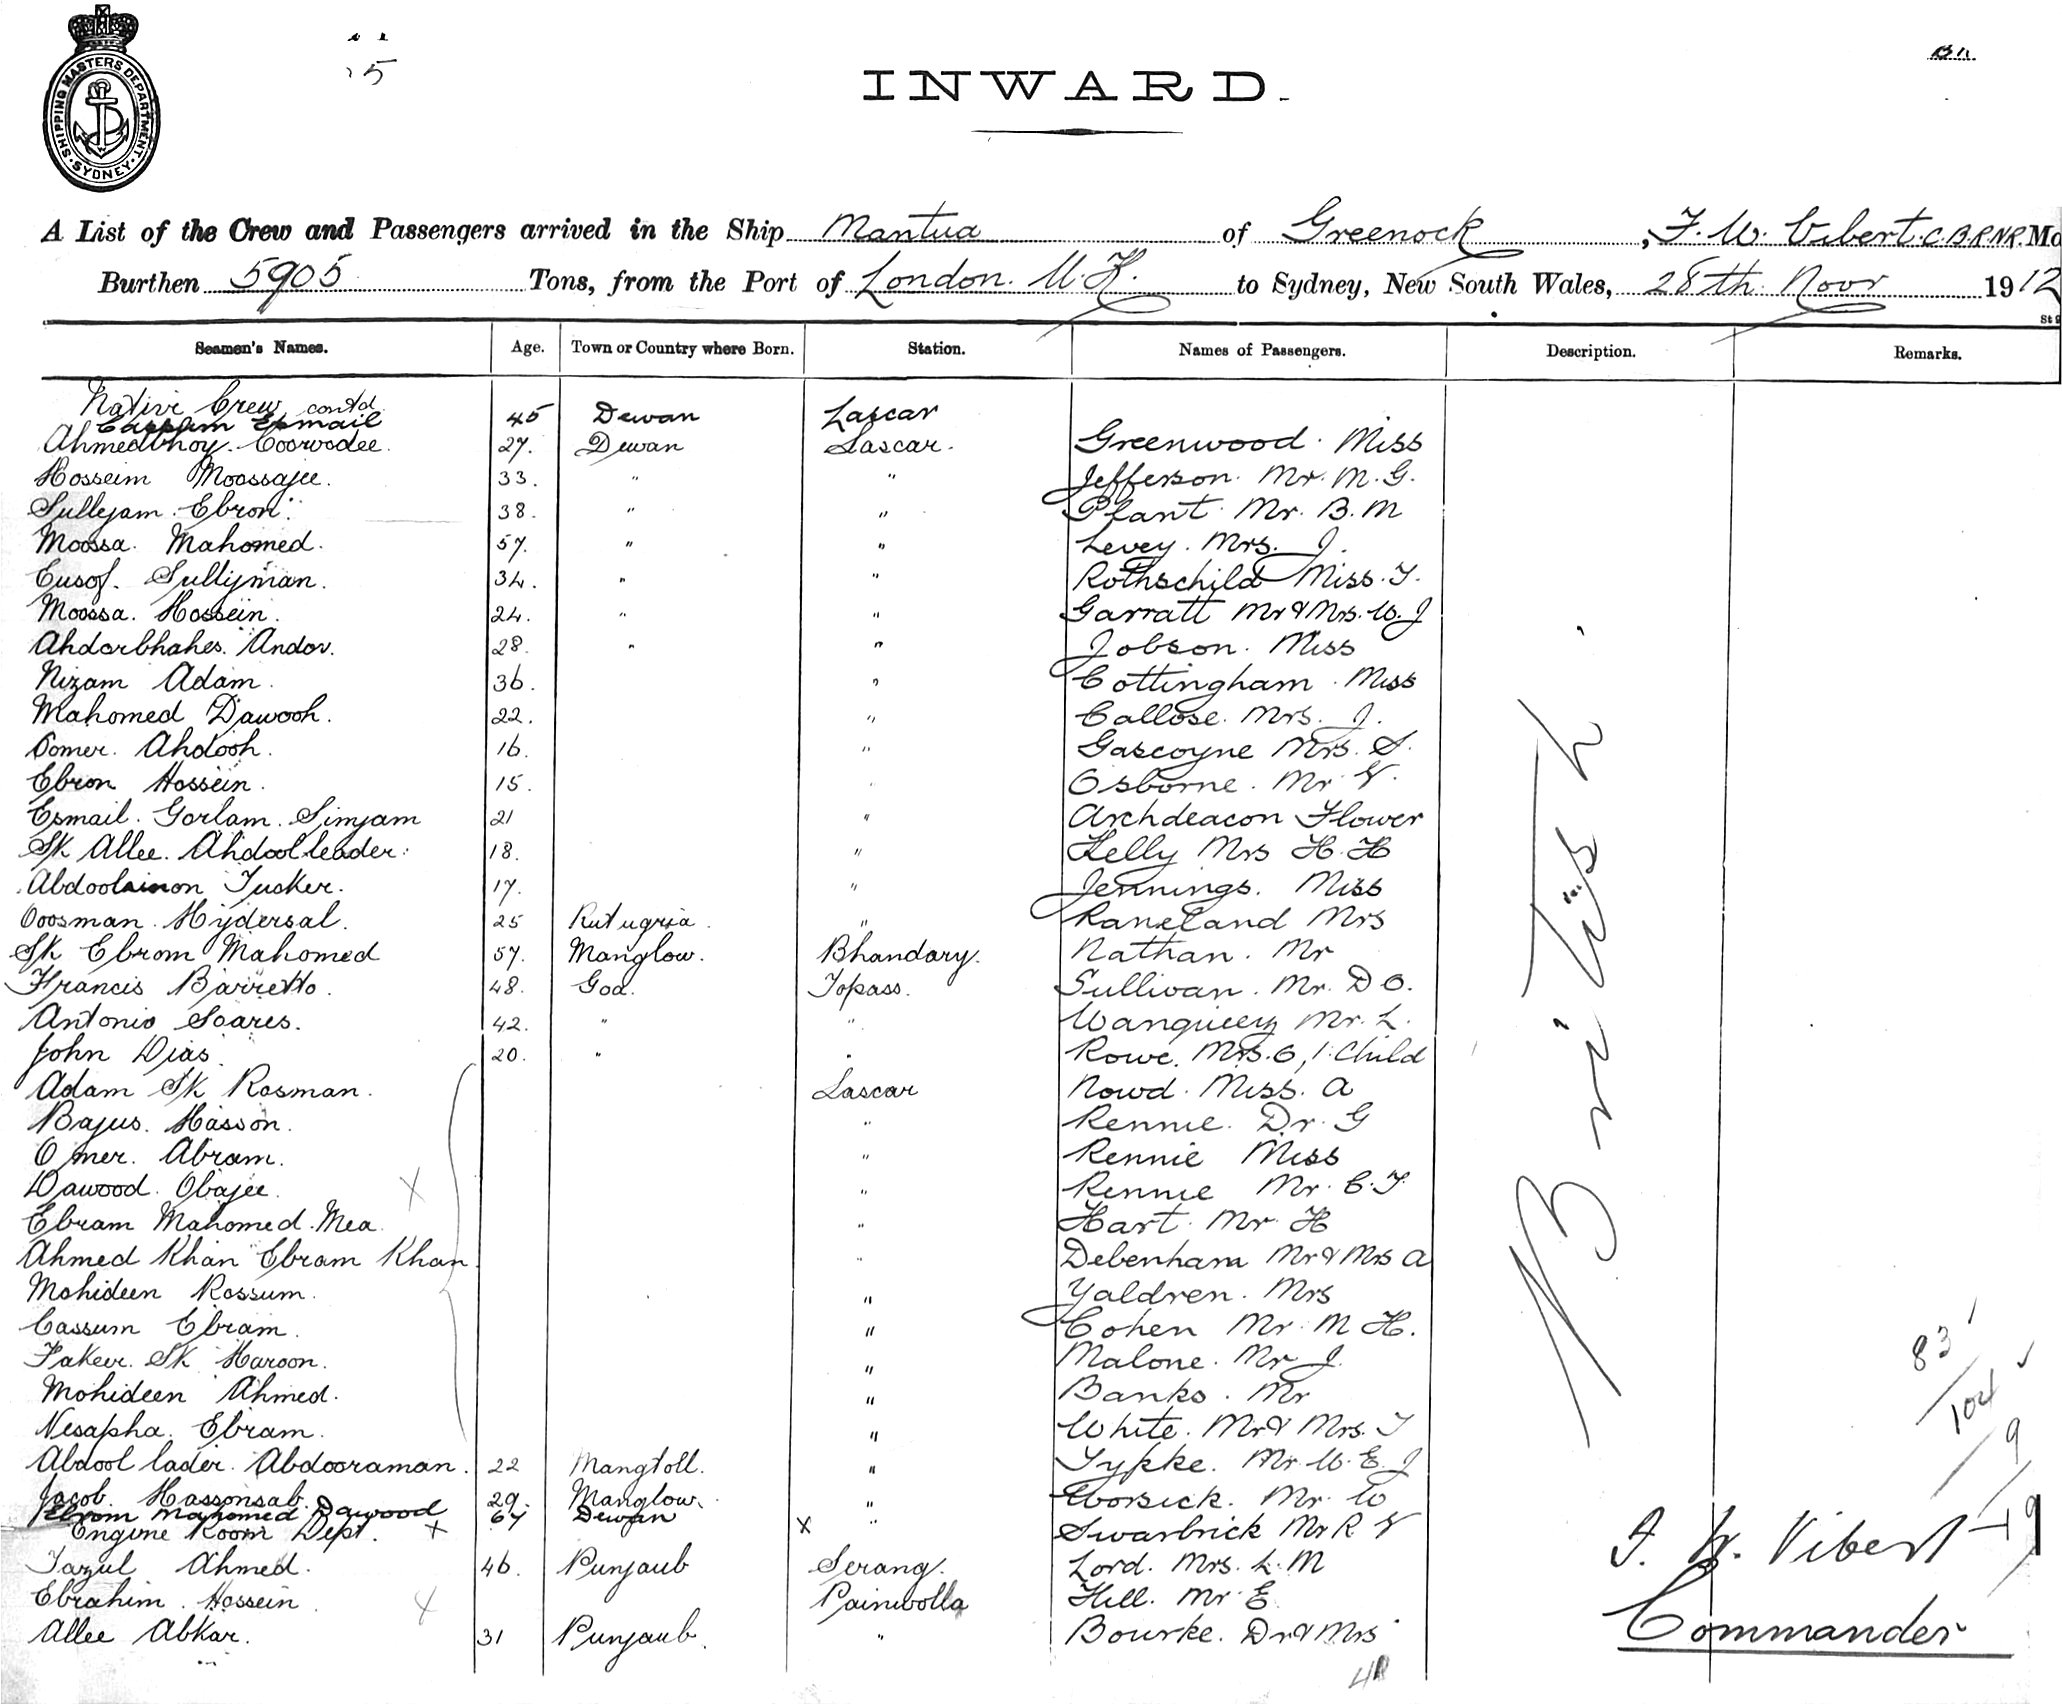 SHIPPING MASTERS DEPARTMENT
SYDNEY
5
INWARD.
A List of the Crew and Passengers arrived in the Ship Mantua of Greenock, F. W. Vibert. C.B.R.N.R.
Burthen 5905 Tons, from the Port of London. U.K. to Sydney, New South Wales, 28th Novr 1912
Seamen's Names. Age. Town or Country where Born. Station. Names of Passengers. Description. Remarks.
Native Crew contd
Cassum Esmail 45 Dewan Lascar
Ahmedbhoy. Coorwdee. 27. Dewan Lascar. Greenwood. Miss
Hosseim Moossajee. 33. " " Jefferson. Mr. M. G.
Sullejam. Ebron. 38. " " Plant. Mr. B. M
Moossa. Mahomed. 57. " " Levey. Mrs. J.
Eusof. Sullijman. 34. " " Rothschild Miss. F.
Moossa. Hossein. 24. " " Garratt Mr & Mrs. W. J
Ahdorbhahes. Andov. 28. " " Jobson. Miss
Nizam Adam. 36. " Cottingham. Miss
Mahomed Dawooh. 22. " Callose. Mrs. J.
Oomer. Ahdooh. 16. " Gascoyne Mrs. S.
Ebron Hossein. 15. " Osborne. Mr V.
Esmail. Gorlam. Simjam 21 " Archdeacon Flower
Sk Allee. Ahdoolleader. 18. " Kelly Mrs H. H
Abdoolainon Tucker. 17. " Jennings. Miss
Oosman. Hydersal. 25 Rutugria. " Raneland Mrs
Sk Ebrom Mahomed 57. Manglow. Bhandary. Nathan. Mr
Francis Barretto. 48. Goa. Topass. Sullivan. Mr. D O.
Antonio Soares. 42. " " Mr. L.
John Dias 20. " " Rowe. Mrs. O, 1. Child
Adam Sk Rosman. Lascar Nowd. Miss. A
Bajus. Hasson. " Rennie. Dr. G
Omer. Abram. " Rennie Miss
Dawood. Obajee. X " Rennie Mr. C. F.
Ebram Mahomed. Mea. " Hart. Mr. H
Ahmed Khan Ebram Khan. " Debenham Mr & Mrs A
Mohideen Rossum. " Yaldren. Mrs
Cassum Ebram. " Cohen Mr. M H.
Fakeer. Sk Haroon. " Malone. Mr J.
Mohideen Ahmed. " Banks. Mr
Nesapha. Ebram. " White. Mr & Mrs. F
Abdool lader. Abdooraman. 22 Mangtoll. " Typke. Mr. W. E. J
Jacob. Hassonsab. 29. Manglow. " Worsick. Mr. W
Ebrom Mahomed Dawood 67 Dewan
Engine Room Dept. X X " Swarbrick Mr R V
Fazul Ahmed. 46. Punjaub Serang. Lord. Mrs. L. M
Ebrahim. Hossein. X Painiwolla Hill. Mr E.
Allee Abkar. 31 Punjaub. " Bourke. Dr & Mrs
British
83
104
9
19
F. W. Vibert
Commander